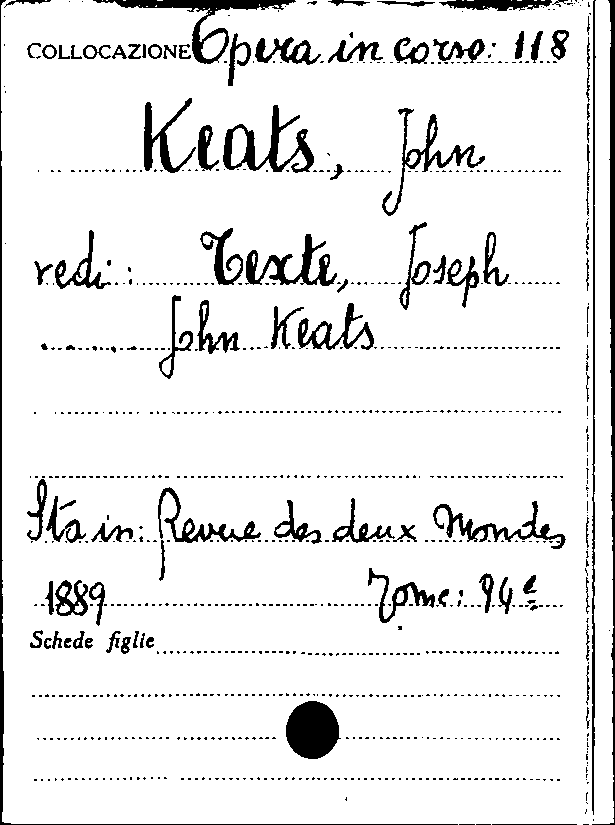 COLLOCAZIONE Opera in corso: 118
Keats, John
vedi: Texte, Joseph
..... John Keats
Sta in: Revue des deux Mondes
1889 Tome: 94e
Schede figlie